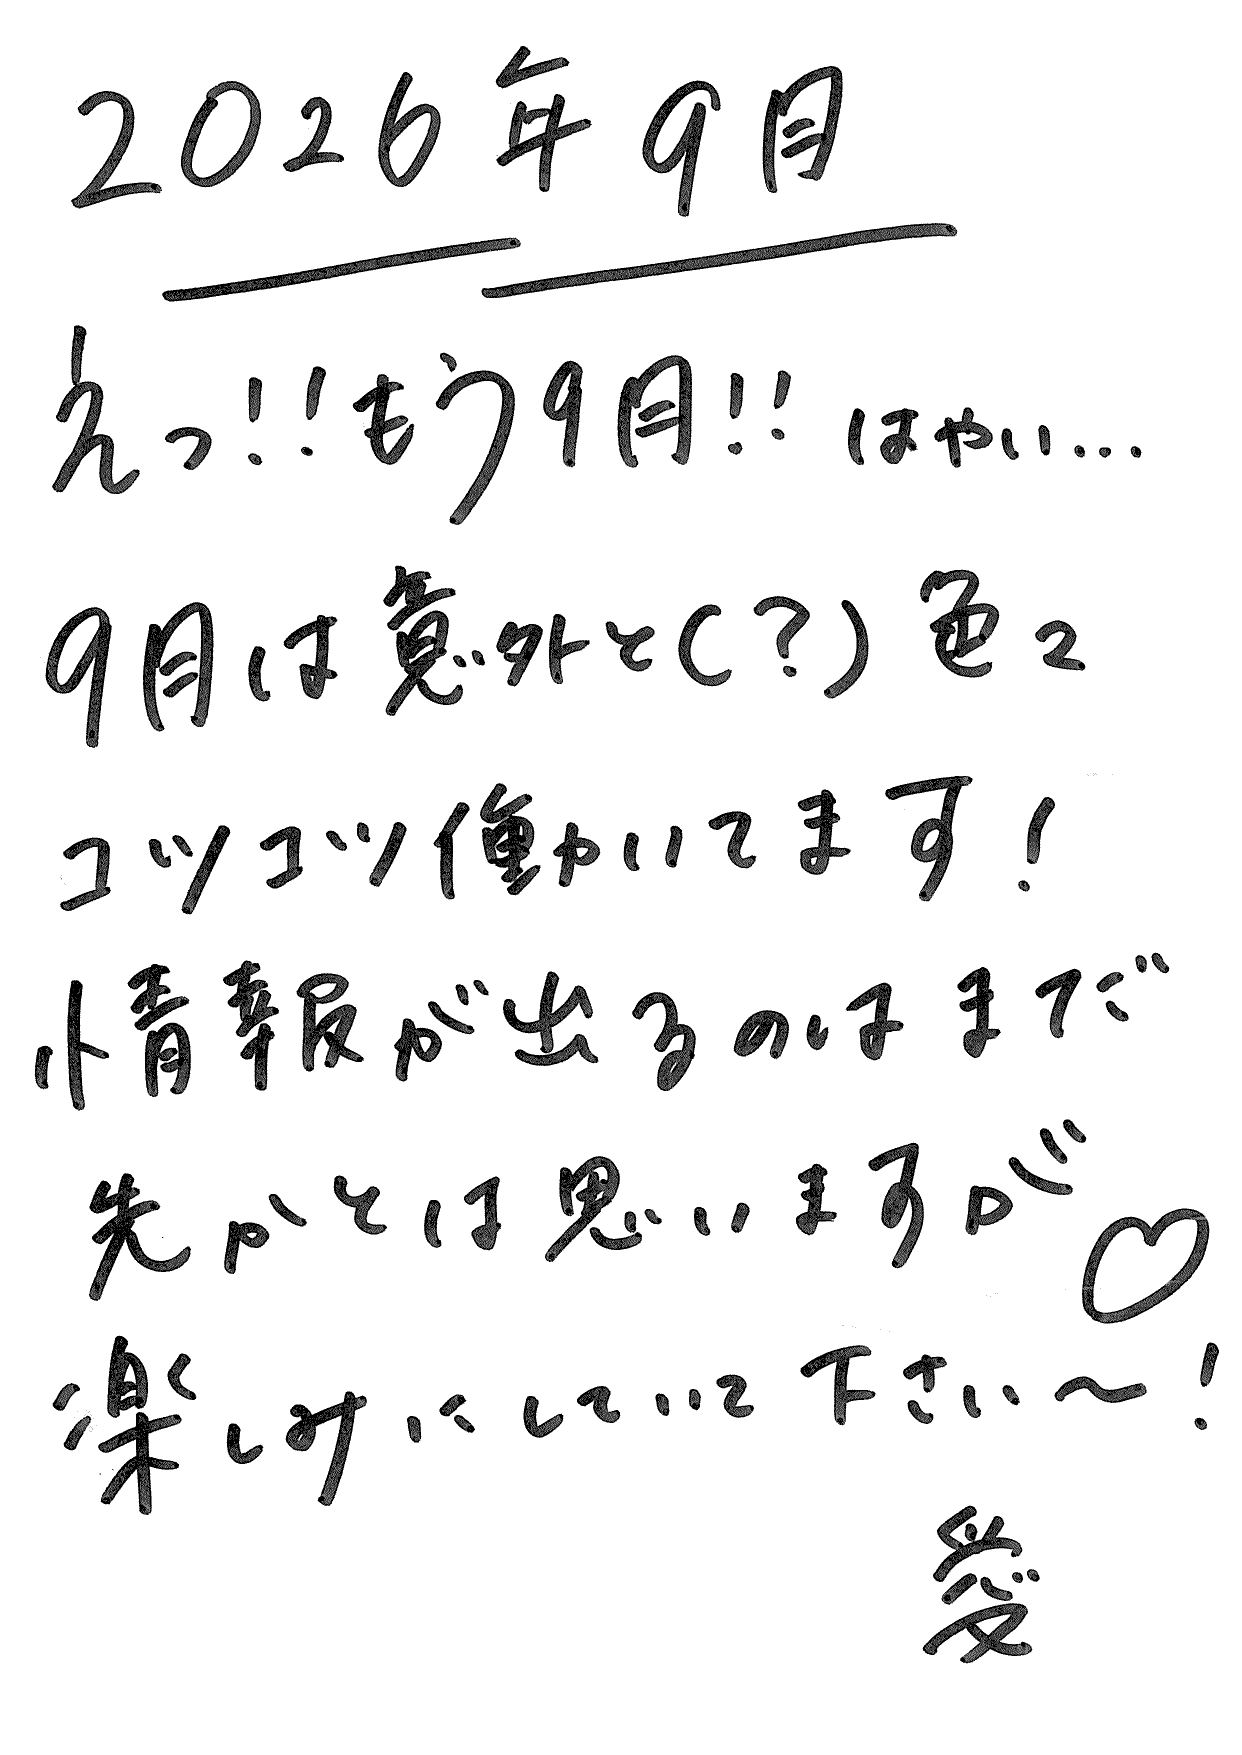 2026年9月
えっ!!もう9月!!はやい...
9月は意外と(?)色々
コツコツ働かいてます!
情報が出るのはまだ
先かとは思いますが♡
楽しみにしていて下さい〜!
愛